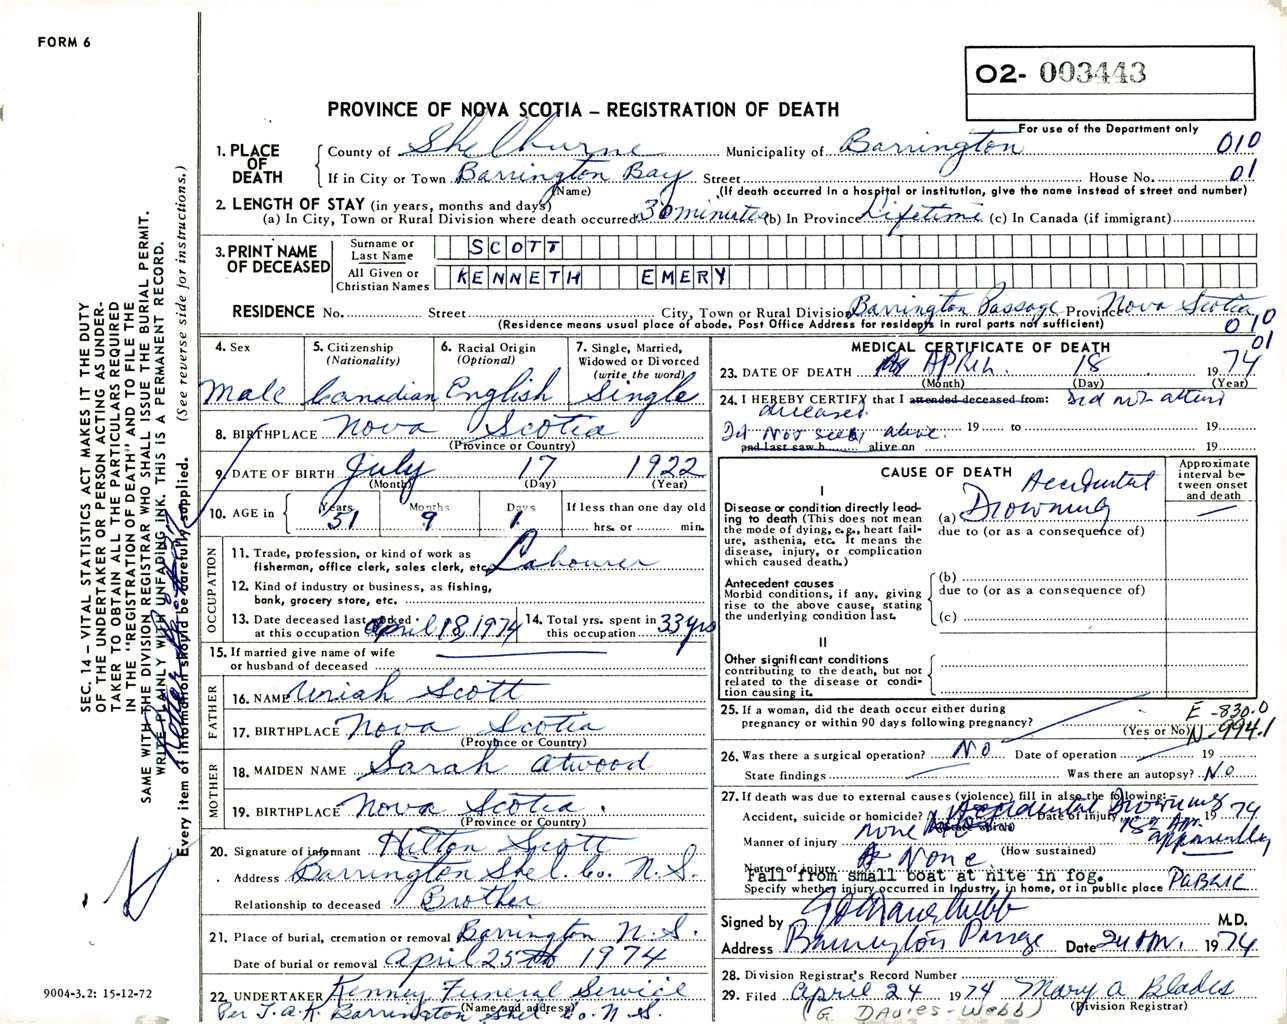 FORM 6
02- 003443
PROVINCE OF NOVA SCOTIA – REGISTRATION OF DEATH
For use of the Department only
1. PLACE OF DEATH
County of Shelburne Municipality of Barrington 010
If in City or Town Barrington Bay Street House No. 01
(Name) (If death occurred in a hospital or institution, give the name instead of street and number)
2. LENGTH OF STAY (in years, months and days)
(a) In City, Town or Rural Division where death occurred 30 minutes (b) In Province Lifetime (c) In Canada (if immigrant)
3. PRINT NAME OF DECEASED
Surname or Last Name SCOTT
All Given or Christian Names KENNETH EMERY
RESIDENCE No. Street City, Town or Rural Division Barrington Passage Province Nova Scotia
(Residence means usual place of abode. Post Office Address for residents in rural parts not sufficient) 010
01
4. Sex Male
5. Citizenship (Nationality) Canadian
6. Racial Origin (Optional) English
7. Single, Married, Widowed or Divorced (write the word) Single
8. BIRTHPLACE Nova Scotia
(Province or Country)
9. DATE OF BIRTH July 17 1922
(Month) (Day) (Year)
10. AGE in Years 51 Months 9 Days 1 If less than one day old
hrs. or min.
OCCUPATION
11. Trade, profession, or kind of work as fisherman, office clerk, sales clerk, etc. Labourer
12. Kind of industry or business, as fishing, bank, grocery store, etc.
13. Date deceased last worked at this occupation April 18, 1974
14. Total yrs. spent in this occupation 33 yrs
15. If married give name of wife or husband of deceased
FATHER
16. NAME Uriah Scott
17. BIRTHPLACE Nova Scotia
(Province or Country)
MOTHER
18. MAIDEN NAME Sarah Atwood
19. BIRTHPLACE Nova Scotia.
(Province or Country)
20. Signature of informant Hilton Scott
Address Barrington Shel. Co. N.S.
Relationship to deceased Brother
21. Place of burial, cremation or removal Barrington N.S.
Date of burial or removal April 25th 1974
22. UNDERTAKER Kenney Funeral Service
(Name and address)
Per J.A.K. Barrington Shel. Co. N.S.
MEDICAL CERTIFICATE OF DEATH
23. DATE OF DEATH APRIL 18 1974
(Month) (Day) (Year)
24. I HEREBY CERTIFY that I attended deceased from: Did not attend
deceased. 19 to 19
Did Not see alive.
and last saw h alive on 19
CAUSE OF DEATH
Approximate interval between onset and death
I
Disease or condition directly leading to death (This does not mean the mode of dying, e.g., heart failure, asthenia, etc. It means the disease, injury, or complication which caused death.)
(a) Accidental Drowning
due to (or as a consequence of)
Antecedent causes
Morbid conditions, if any, giving rise to the above cause, stating the underlying condition last.
(b)
due to (or as a consequence of)
(c)
II
Other significant conditions contributing to the death, but not related to the disease or condition causing it.
25. If a woman, did the death occur either during pregnancy or within 90 days following pregnancy?
(Yes or No)
E-830.0
N-994.1
26. Was there a surgical operation? No Date of operation 19
State findings Was there an autopsy? No
27. If death was due to external causes (violence) fill in also the following:–
Accident, suicide or homicide? Accidental Drowning Date of injury 18 Apr. 1974
Manner of injury none apparently
(How sustained)
Nature of injury None.
Fall from small boat at nite in fog.
Specify whether injury occurred in industry, in home, or in public place PUBLIC
Signed by M.D.
Address Barrington Passage Date 24 Apr. 1974
28. Division Registrar's Record Number
29. Filed April 24 1974 Mary A Blades
(Division Registrar)
(G DAVIES-WEBB)
SEC. 14 – VITAL STATISTICS ACT MAKES IT THE DUTY
OF THE UNDERTAKER OR PERSON ACTING AS UNDER-
TAKER TO OBTAIN ALL THE PARTICULARS REQUIRED
IN THE "REGISTRATION OF DEATH" AND TO FILE THE
SAME WITH THE DIVISION REGISTRAR WHO SHALL ISSUE THE BURIAL PERMIT.
WRITE PLAINLY WITH UNFADING INK. THIS IS A PERMANENT RECORD.
Every item of information should be carefully supplied. (See reverse side for instructions.)
9004-3.2: 15-12-72